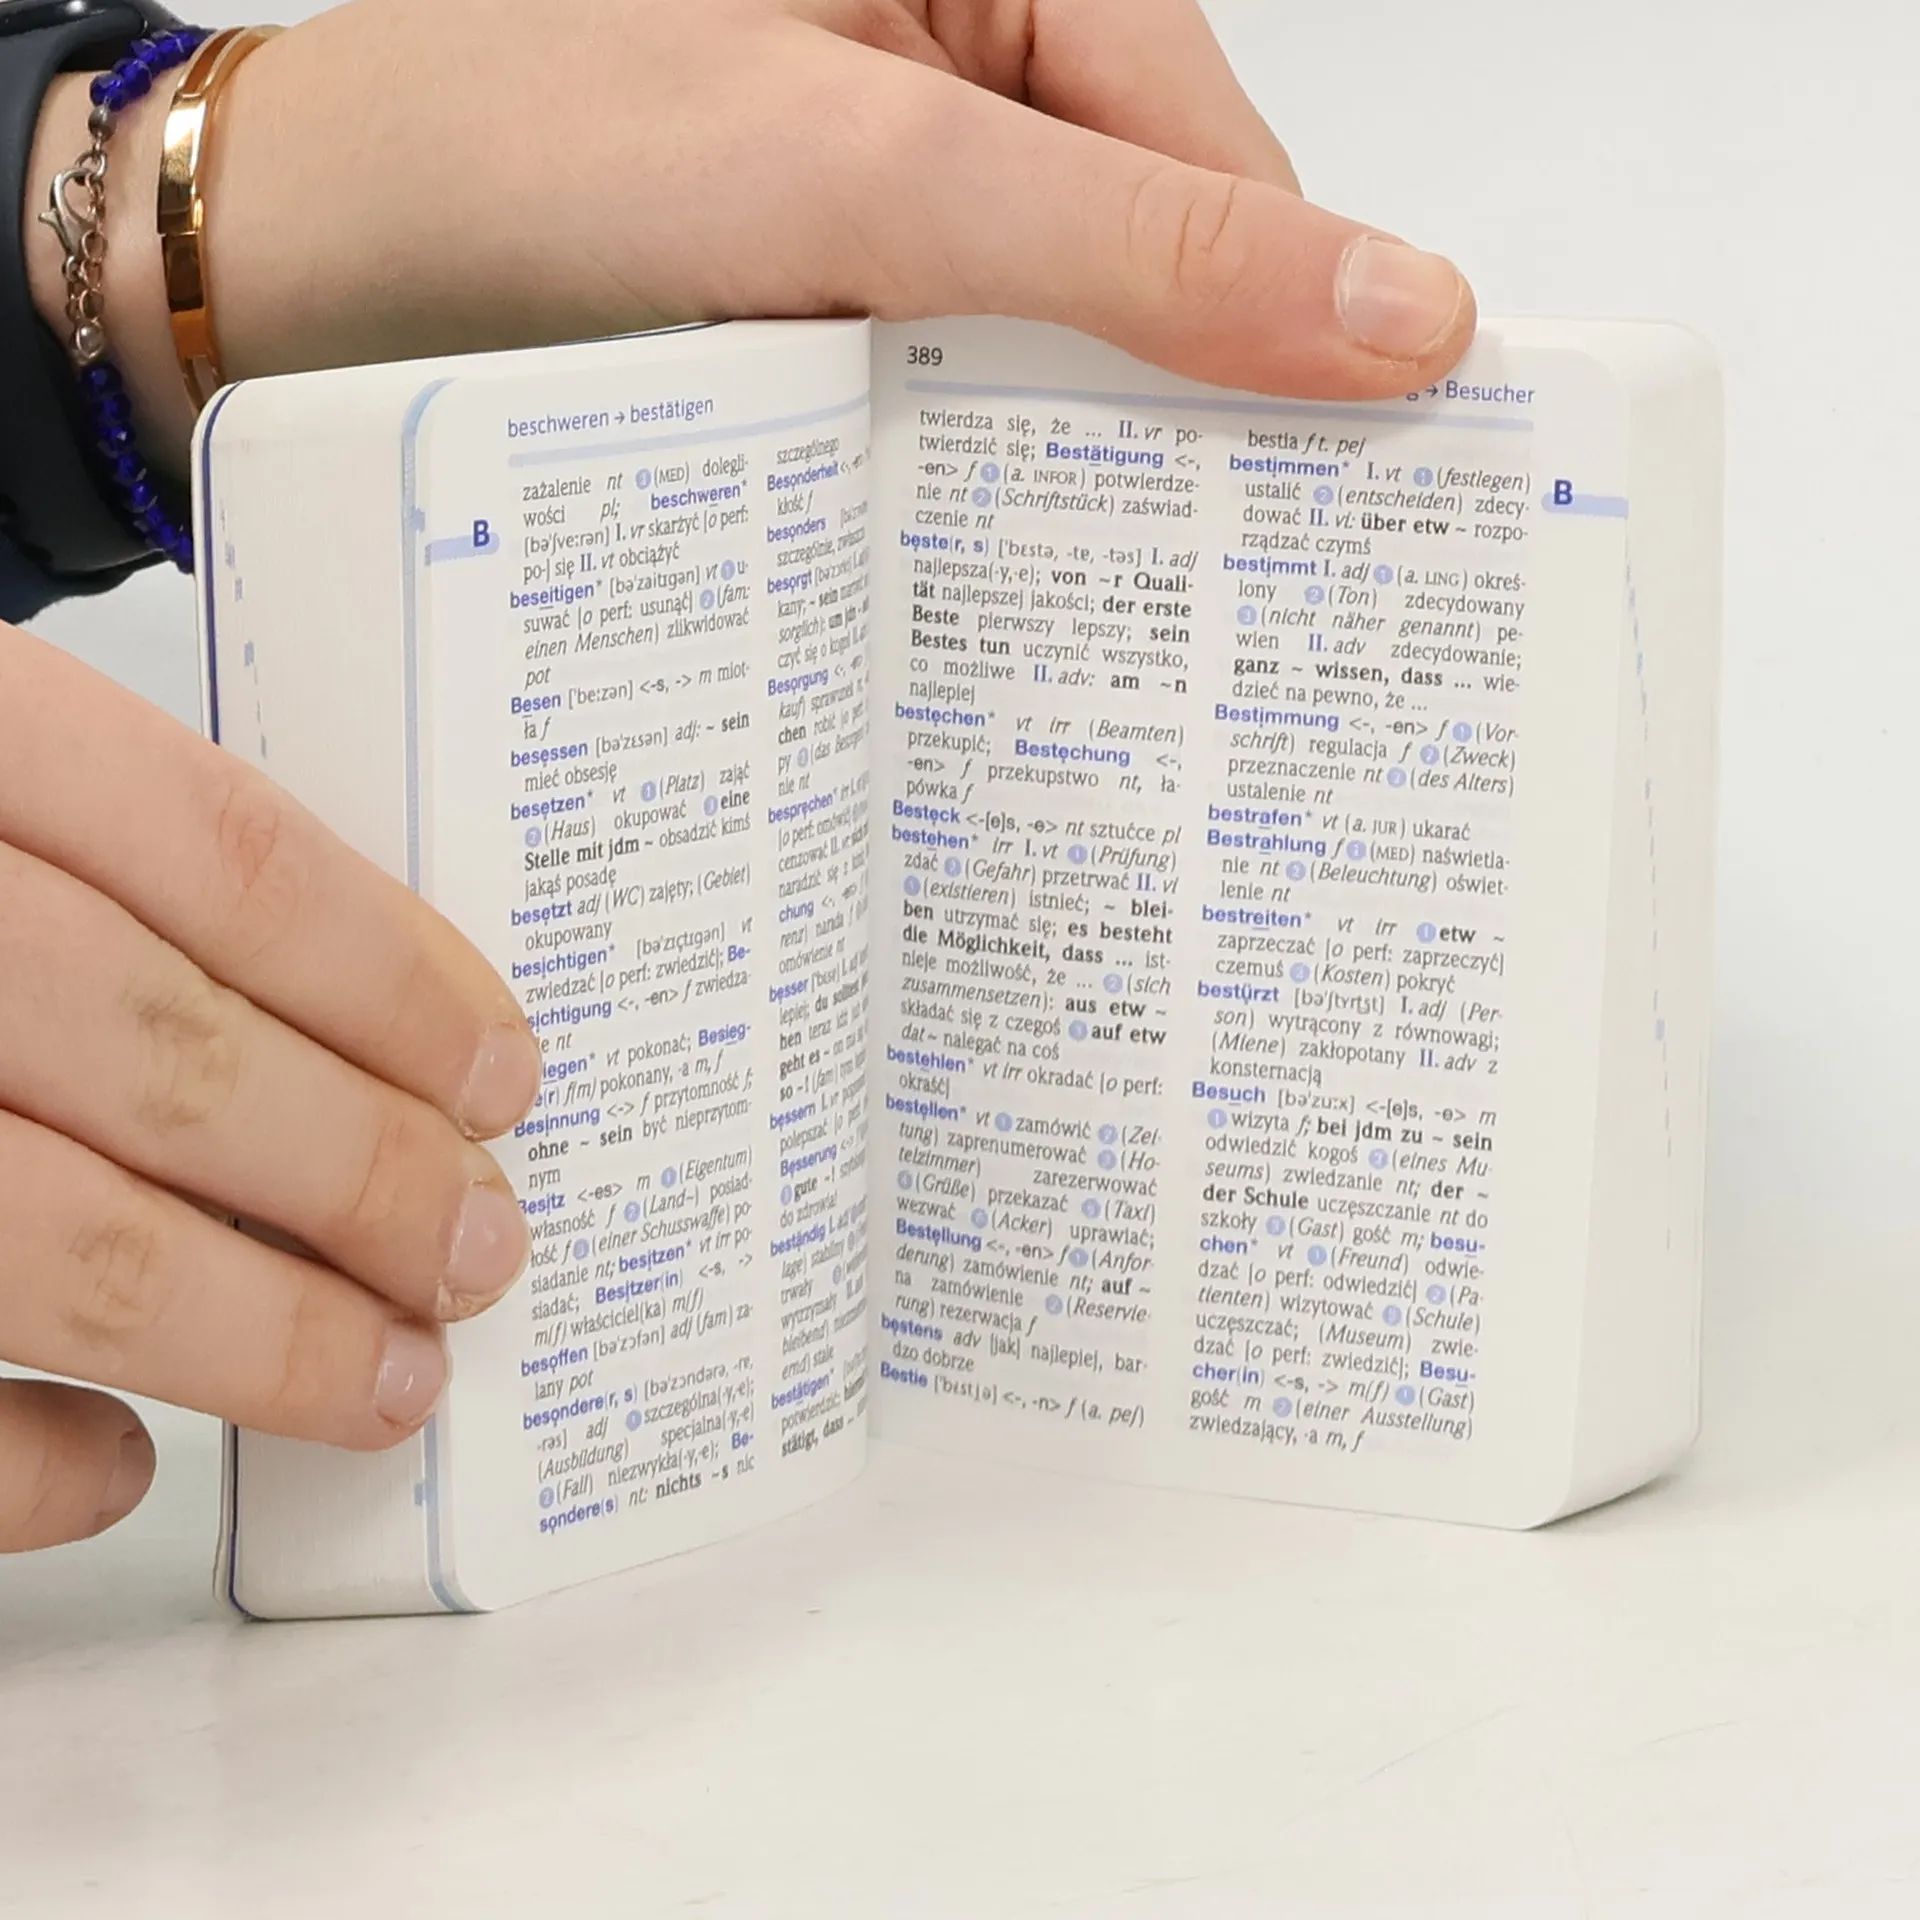 beschweren → bestätigen
B
zażalenie nt ③ (MED) dolegli-
wości pl; beschweren*
[bəˈʃveːrən] I. vr skarżyć [o perf:
po-] się II. vt obciążyć
beseitigen* [bəˈzaitɪgən] vt ① u-
suwać [o perf: usunąć] ② (fam:
einen Menschen) zlikwidować
pot
Besen [ˈbeːzən] <-s, -> m miot-
ła f
besessen [bəˈzɛsən] adj: ~ sein
mieć obsesję
besetzen* vt ① (Platz) zająć
② (Haus) okupować ③ eine
Stelle mit jdm ~ obsadzić kimś
jakąś posadę
besetzt adj (WC) zajęty; (Gebiet)
okupowany
besichtigen* [bəˈzɪçtɪgən] vt
zwiedzać [o perf: zwiedzić]; Be-
sichtigung <-, -en> f zwiedza-
nt
vt pokonać; Besieg-
f(m) pokonany, -a m, f
Besinnung <-> f przytomność f;
ohne ~ sein być nieprzytom-
nym
Besitz <-es> m ① (Eigentum)
własność f ② (Land~) posiad-
łość f ③ (einer Schusswaffe) po-
siadanie nt; besitzen* vt irr po-
siadać; Besitzer(in) <-s, ->
m(f) właściciel(ka) m(f)
besoffen [bəˈzɔfən] adj (fam) za-
lany pot
besondere(r, s) [bəˈzɔndərə, -rɐ,
-rəs] adj ① szczególna(-y,-e);
(Ausbildung) specjalna(-y,-e)
② (Fall) niezwykła(-y,-e); Be-
sondere(s) nt: nichts ~s nic
szczególnego
Besonderheit
kłość f
besonders
szczególnie,
besorgt
kany; ~ sein
um jdn
czyć się o kogoś
Besorgung <-,
kauf) sprawunek
chen robić
py ② (das
nie nt
besprechen* irr
[o perf: omówić]
cenzować II. vr
naradzić się z
chung <-,
renz) narada f
omówienie nt
besser I. adj
lepiej; du solltest
ben teraz iść
geht es ~ on ma
so ~! (fam) tym
bessern I. vr
polepszać [o perf
Besserung <-> f
① gute ~!
do zdrowia!
beständig I. adj
lage) stabilny
trwały
wytrzymały II. adv
bleibend)
ernd) stale
bestätigen*
potwierdzić;
stätigt, dass
389
→ Besucher
B
twierdza się, że ... II. vr po-
twierdzić się; Bestätigung <-,
-en> f ① (a. INFOR) potwierdze-
nie nt ② (Schriftstück) zaświad-
czenie nt
beste(r, s) [ˈbɛstə, -tɐ, -təs] I. adj
najlepsza(-y,-e); von ~r Quali-
tät najlepszej jakości; der erste
Beste pierwszy lepszy; sein
Bestes tun uczynić wszystko,
co możliwe II. adv: am ~n
najlepiej
bestechen* vt irr (Beamten)
przekupić; Bestechung <-,
-en> f przekupstwo nt, ła-
pówka f
Besteck <-[e]s, -e> nt sztućce pl
bestehen* irr I. vt ① (Prüfung)
zdać ② (Gefahr) przetrwać II. vi
① (existieren) istnieć; ~ blei-
ben utrzymać się; es besteht
die Möglichkeit, dass ... ist-
nieje możliwość, że ... ② (sich
zusammensetzen): aus etw ~
składać się z czegoś ③ auf etw
dat ~ nalegać na coś
bestehlen* vt irr okradać [o perf:
okraść]
bestellen* vt ① zamówić ② (Zei-
tung) zaprenumerować ③ (Ho-
telzimmer) zarezerwować
④ (Grüße) przekazać ⑤ (Taxi)
wezwać ⑥ (Acker) uprawiać;
Bestellung <-, -en> f ① (Anfor-
derung) zamówienie nt; auf ~
na zamówienie ② (Reservie-
rung) rezerwacja f
bestens adv [jak] najlepiej, bar-
dzo dobrze
Bestie [ˈbɛstjə] <-, -n> f (a. pej)
bestia f t. pej
bestimmen* I. vt ① (festlegen)
ustalić ② (entscheiden) zdecy-
dować II. vi: über etw ~ rozpo-
rządzać czymś
bestimmt I. adj ① (a. LING) okreś-
lony ② (Ton) zdecydowany
③ (nicht näher genannt) pe-
wien II. adv zdecydowanie;
ganz ~ wissen, dass ... wie-
dzieć na pewno, że ...
Bestimmung <-, -en> f ① (Vor-
schrift) regulacja f ② (Zweck)
przeznaczenie nt ③ (des Alters)
ustalenie nt
bestrafen* vt (a. JUR) ukarać
Bestrahlung f ① (MED) naświetla-
nie nt ② (Beleuchtung) oświet-
lenie nt
bestreiten* vt irr ① etw ~
zaprzeczać [o perf: zaprzeczyć]
czemuś ② (Kosten) pokryć
bestürzt [bəˈʃtʏrtst] I. adj (Per-
son) wytrącony z równowagi;
(Miene) zakłopotany II. adv z
konsternacją
Besuch [bəˈzuːx] <-[e]s, -e> m
① wizyta f; bei jdm zu ~ sein
odwiedzić kogoś ② (eines Mu-
seums) zwiedzanie nt; der ~
der Schule uczęszczanie nt do
szkoły ③ (Gast) gość m; besu-
chen* vt ① (Freund) odwie-
dzać [o perf: odwiedzić] ② (Pa-
tienten) wizytować ③ (Schule)
uczęszczać; (Museum) zwie-
dzać [o perf: zwiedzić]; Besu-
cher(in) <-s, -> m(f) ① (Gast)
gość m ② (einer Ausstellung)
zwiedzający, -a m, f